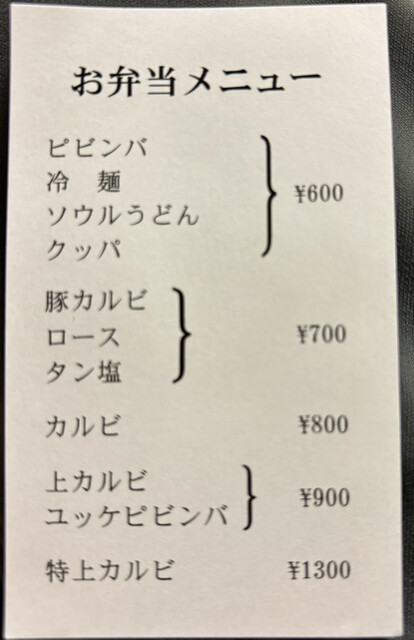 お弁当メニュー
ピビンバ
冷　麺
ソウルうどん
クッパ
¥600
豚カルビ
ロース
タン塩
¥700
カルビ ¥800
上カルビ
ユッケピビンバ
¥900
特上カルビ ¥1300